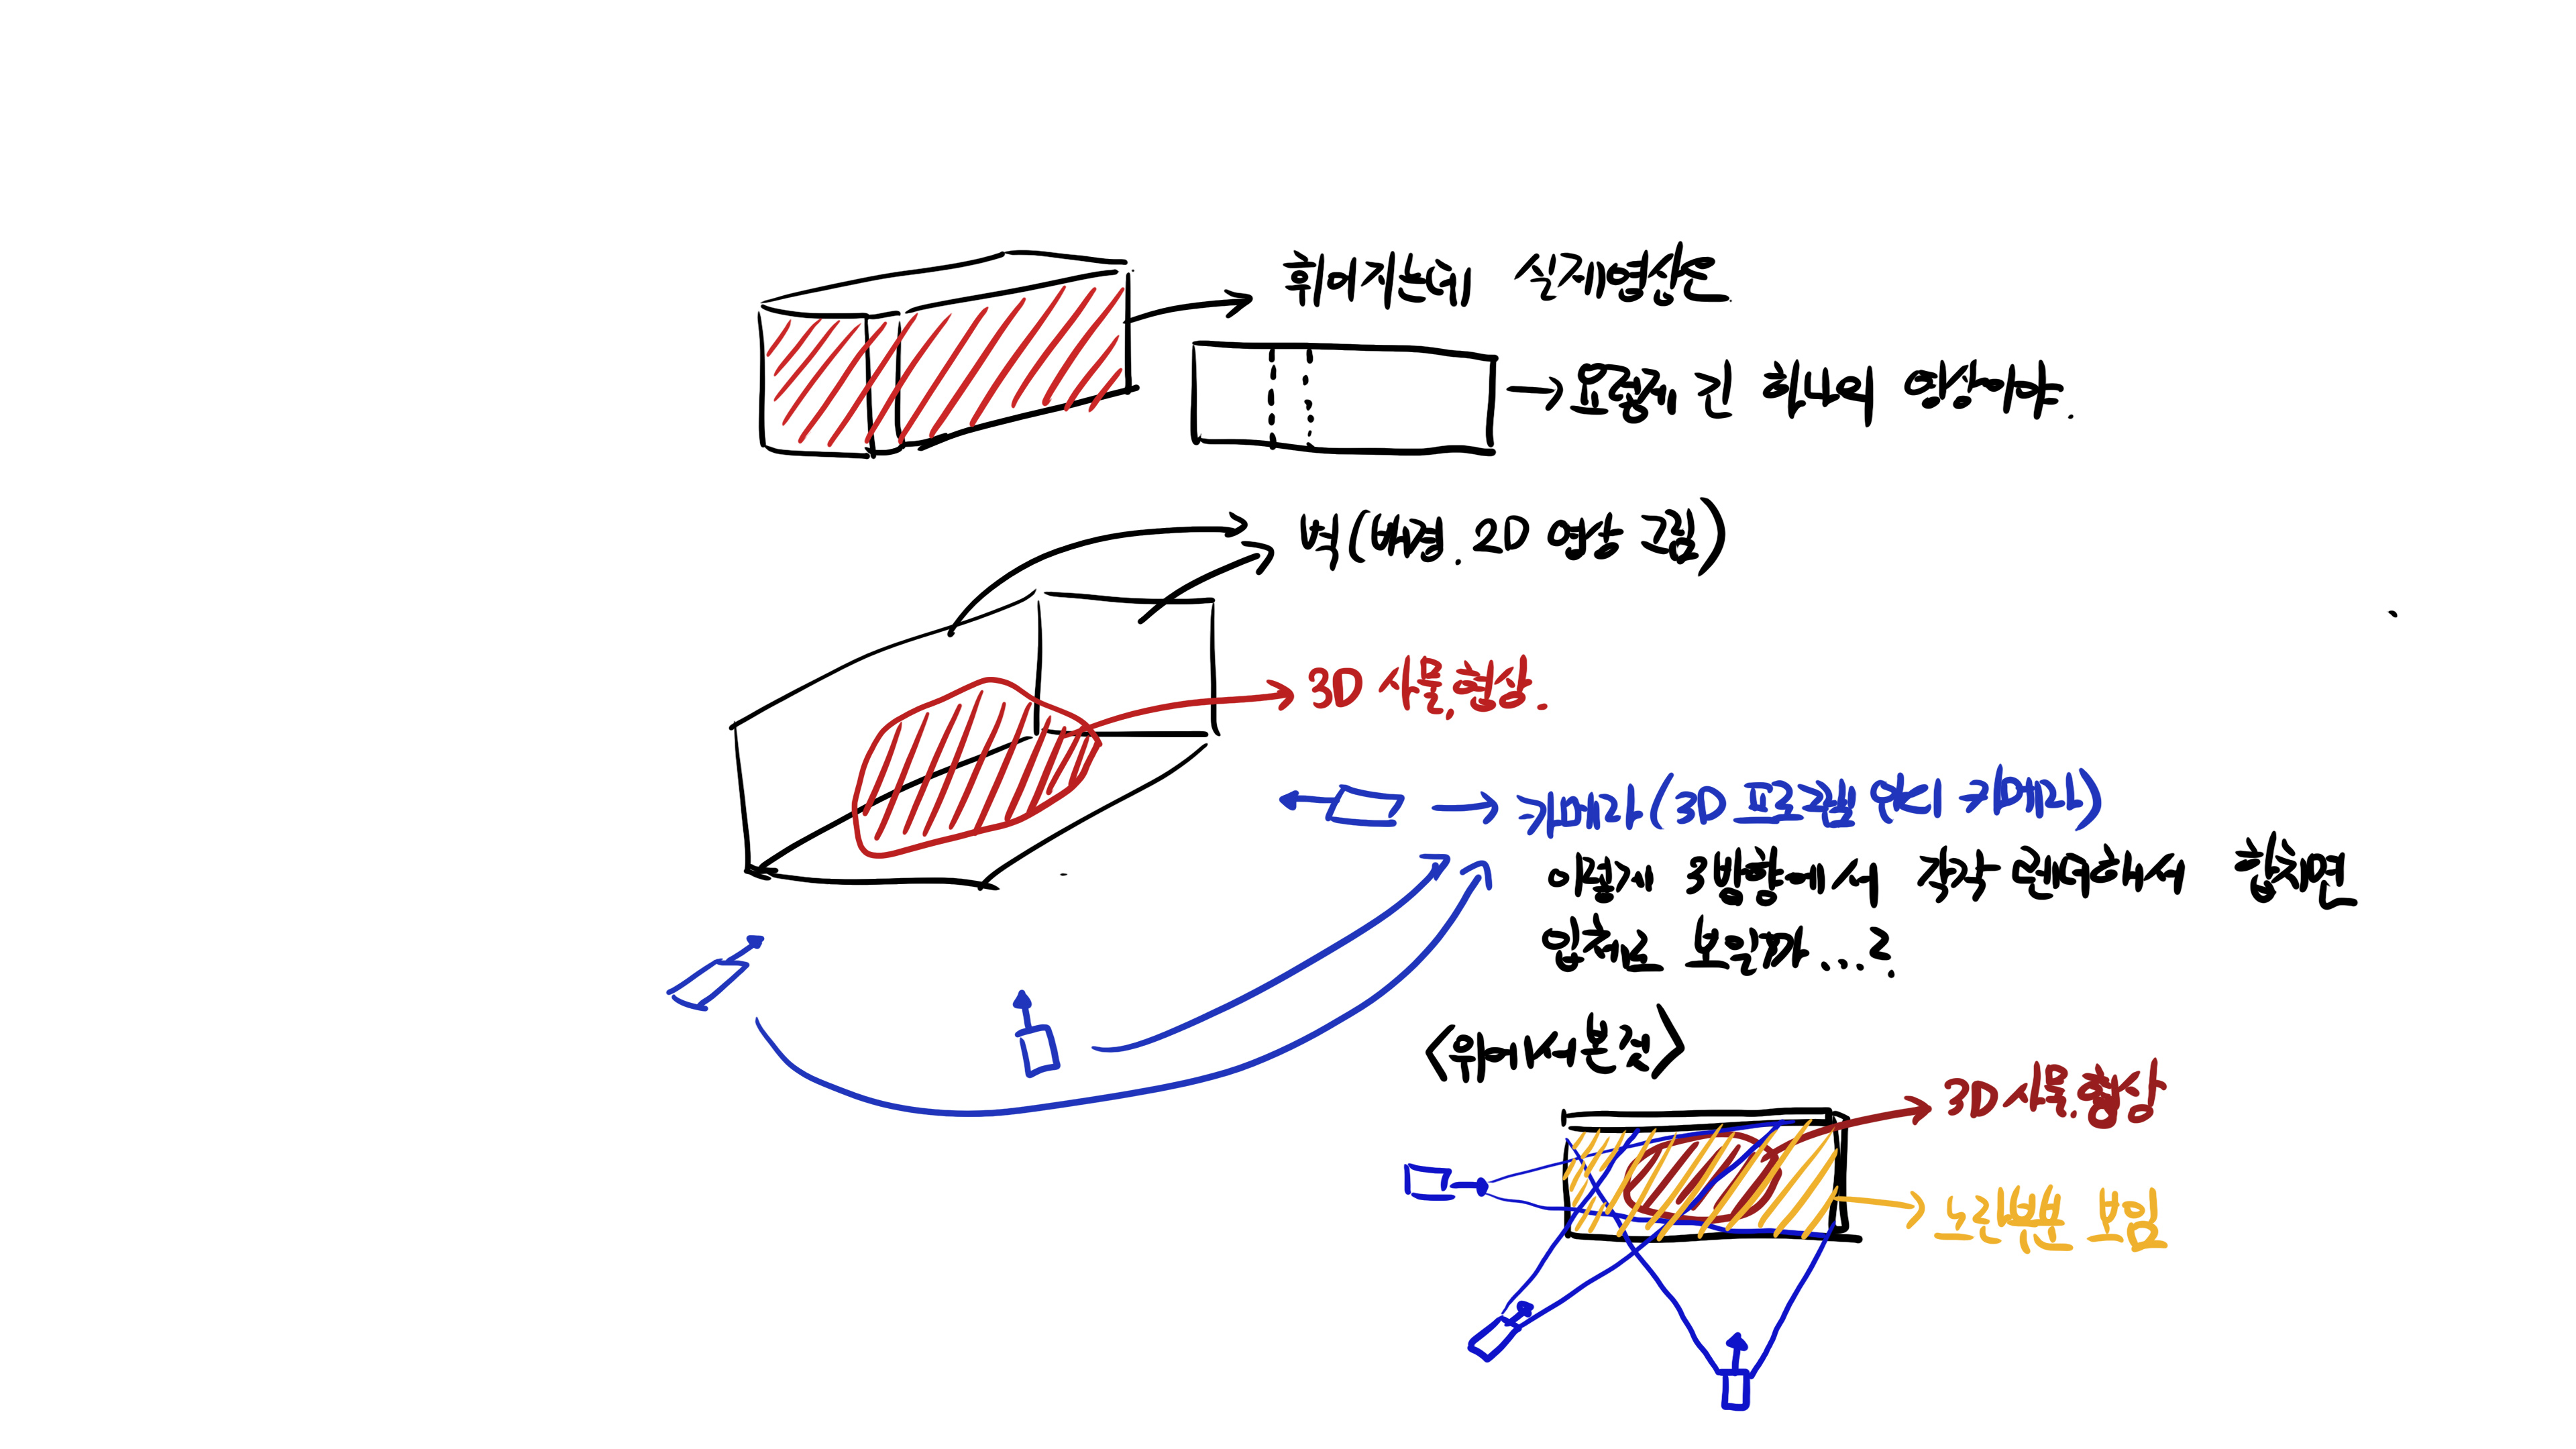 휘어지는데 실제영상은
요렇게 긴 하나의 영상이야.
벽(배경. 2D 영상 그림)
3D 사물.형상.
카메라(3D 프로그램 위치 카메라)
이렇게 3방향에서 각각 렌더해서 합치면
입체로 보일까...?
<위에서본것>
3D사물.형상
노란부분 보임